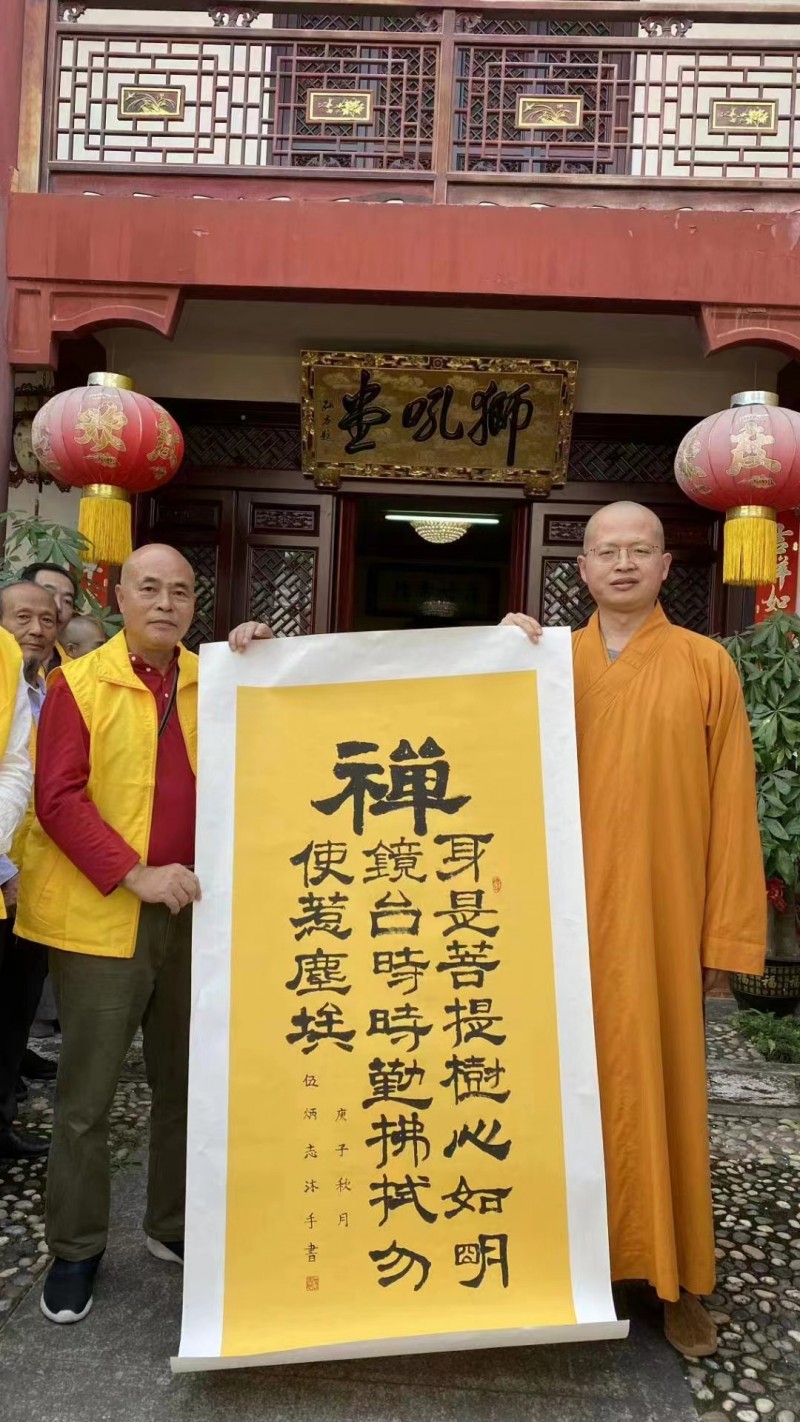 獅吼堂
吉祥如
禪
身是菩提樹心如明
鏡台時時勤拂拭勿
使惹塵埃
庚子秋月
伍炳志沐手書